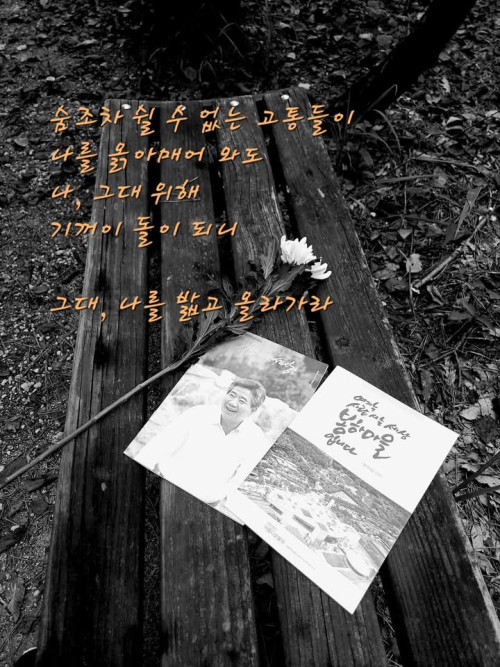 숨조차 쉴 수 없는 고통들이
나를 옭아매어 와도
나, 그대 위해
기꺼이 돌이 되니
그대, 나를 밟고 올라가라
사람 사는 세상
봉하마을
입니다